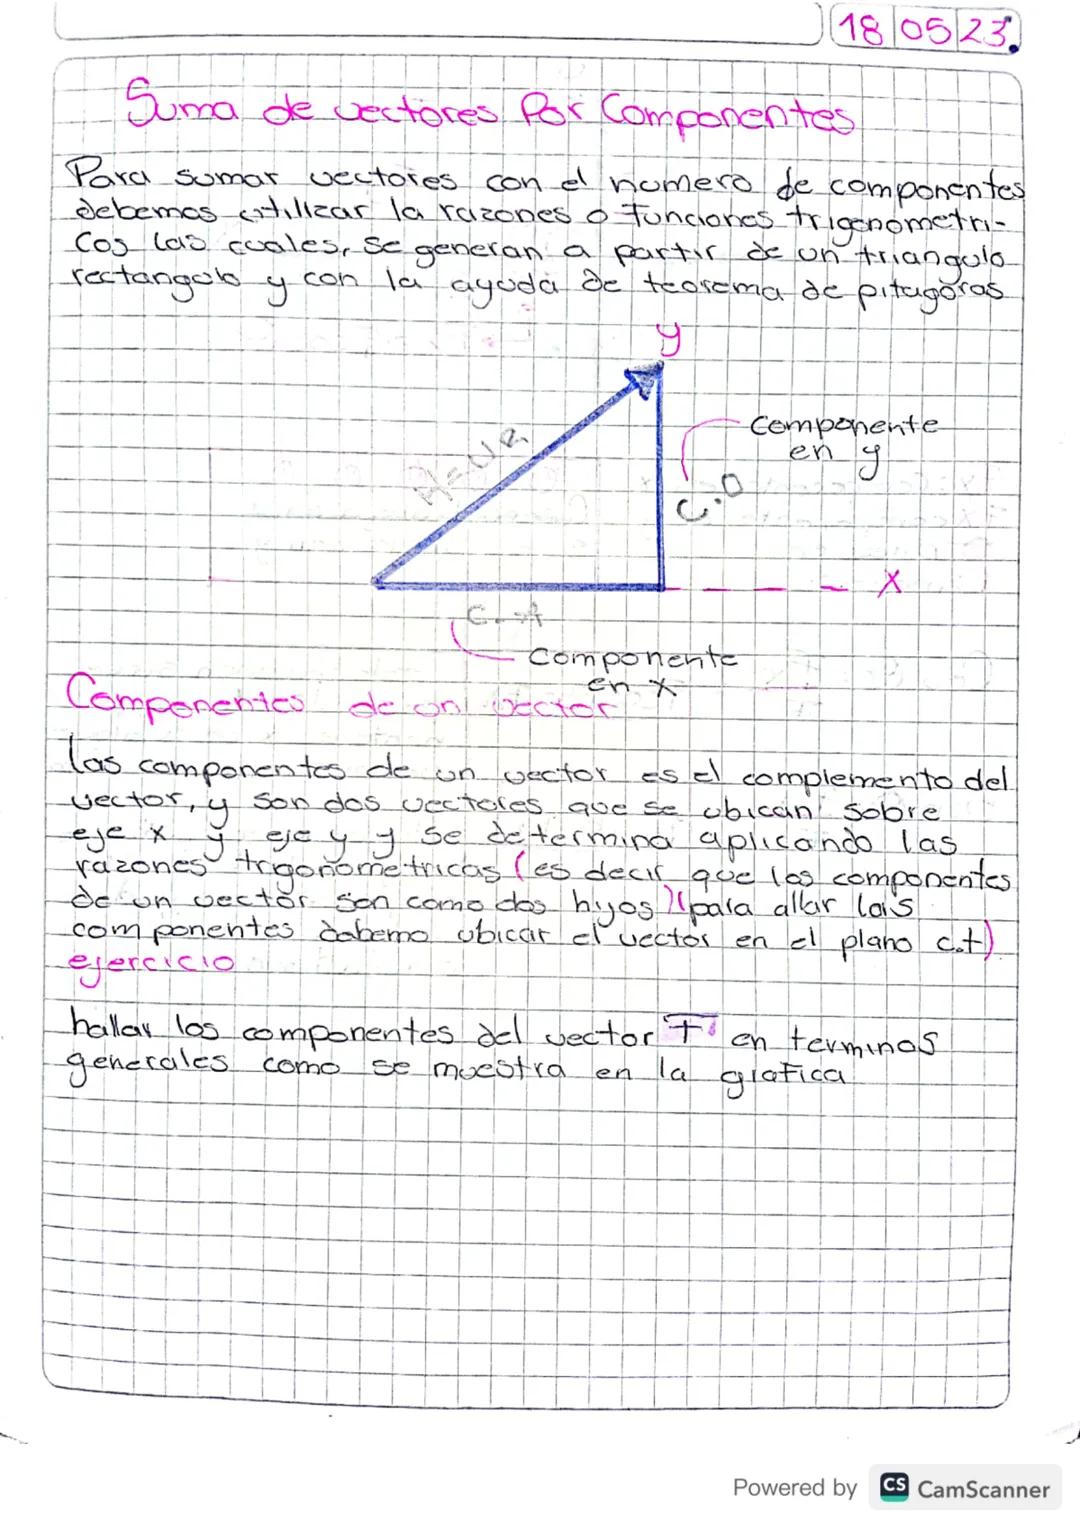 18 05 23
Suma de vectores Por Componentes
Para sumar vectores con el numero de componentes
debemos utilizar la razones o funciones trigonometri-
cos las cuales, se generan a partir de un triangulo
rectangulo y con la ayuda de teorema de pitagoras
y
componente
en y
C.O
x
C.A
Componente
en x
Componentes de un vector
las componentes de un vector es el complemento del
vector, y son dos vectores que se ubican sobre
eje x y eje y y se determina aplicando las
razones trigonometricas (es decir que los componentes
de un vector son como dos hijos) (para allar lais
componentes debemo ubicar el vector en el plano c.t)
ejercicio
hallar los componentes del vector T en terminos
generales como se muestra en la grafica
Powered by CS CamScanner